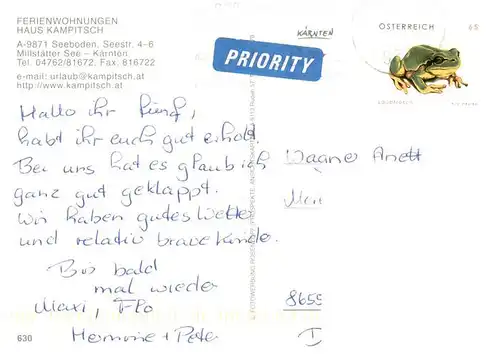 FERIENWOHNUNGEN
HAUS KAMPITSCH
A-9871 Seeboden, Seestr. 4-6
Millstätter See – Kärnten
Tel. 04762/81672, Fax: 816722
e-mail: urlaub@kampitsch.at
http://www.kampitsch.at
Hallo ihr fünf,
habt ihr euch gut erholt.
Bei uns hat es glaub ich
ganz gut geklappt.
Wir haben gutes Wette
und relativ brave Kinde.
Bis bald
mal wieder
Maxi, Flo
Hermine + Peter
630
PRIORITY
KÄRNTEN
ÖSTERREICH
65
LAUBFROSCH
Wagner Anett
8655